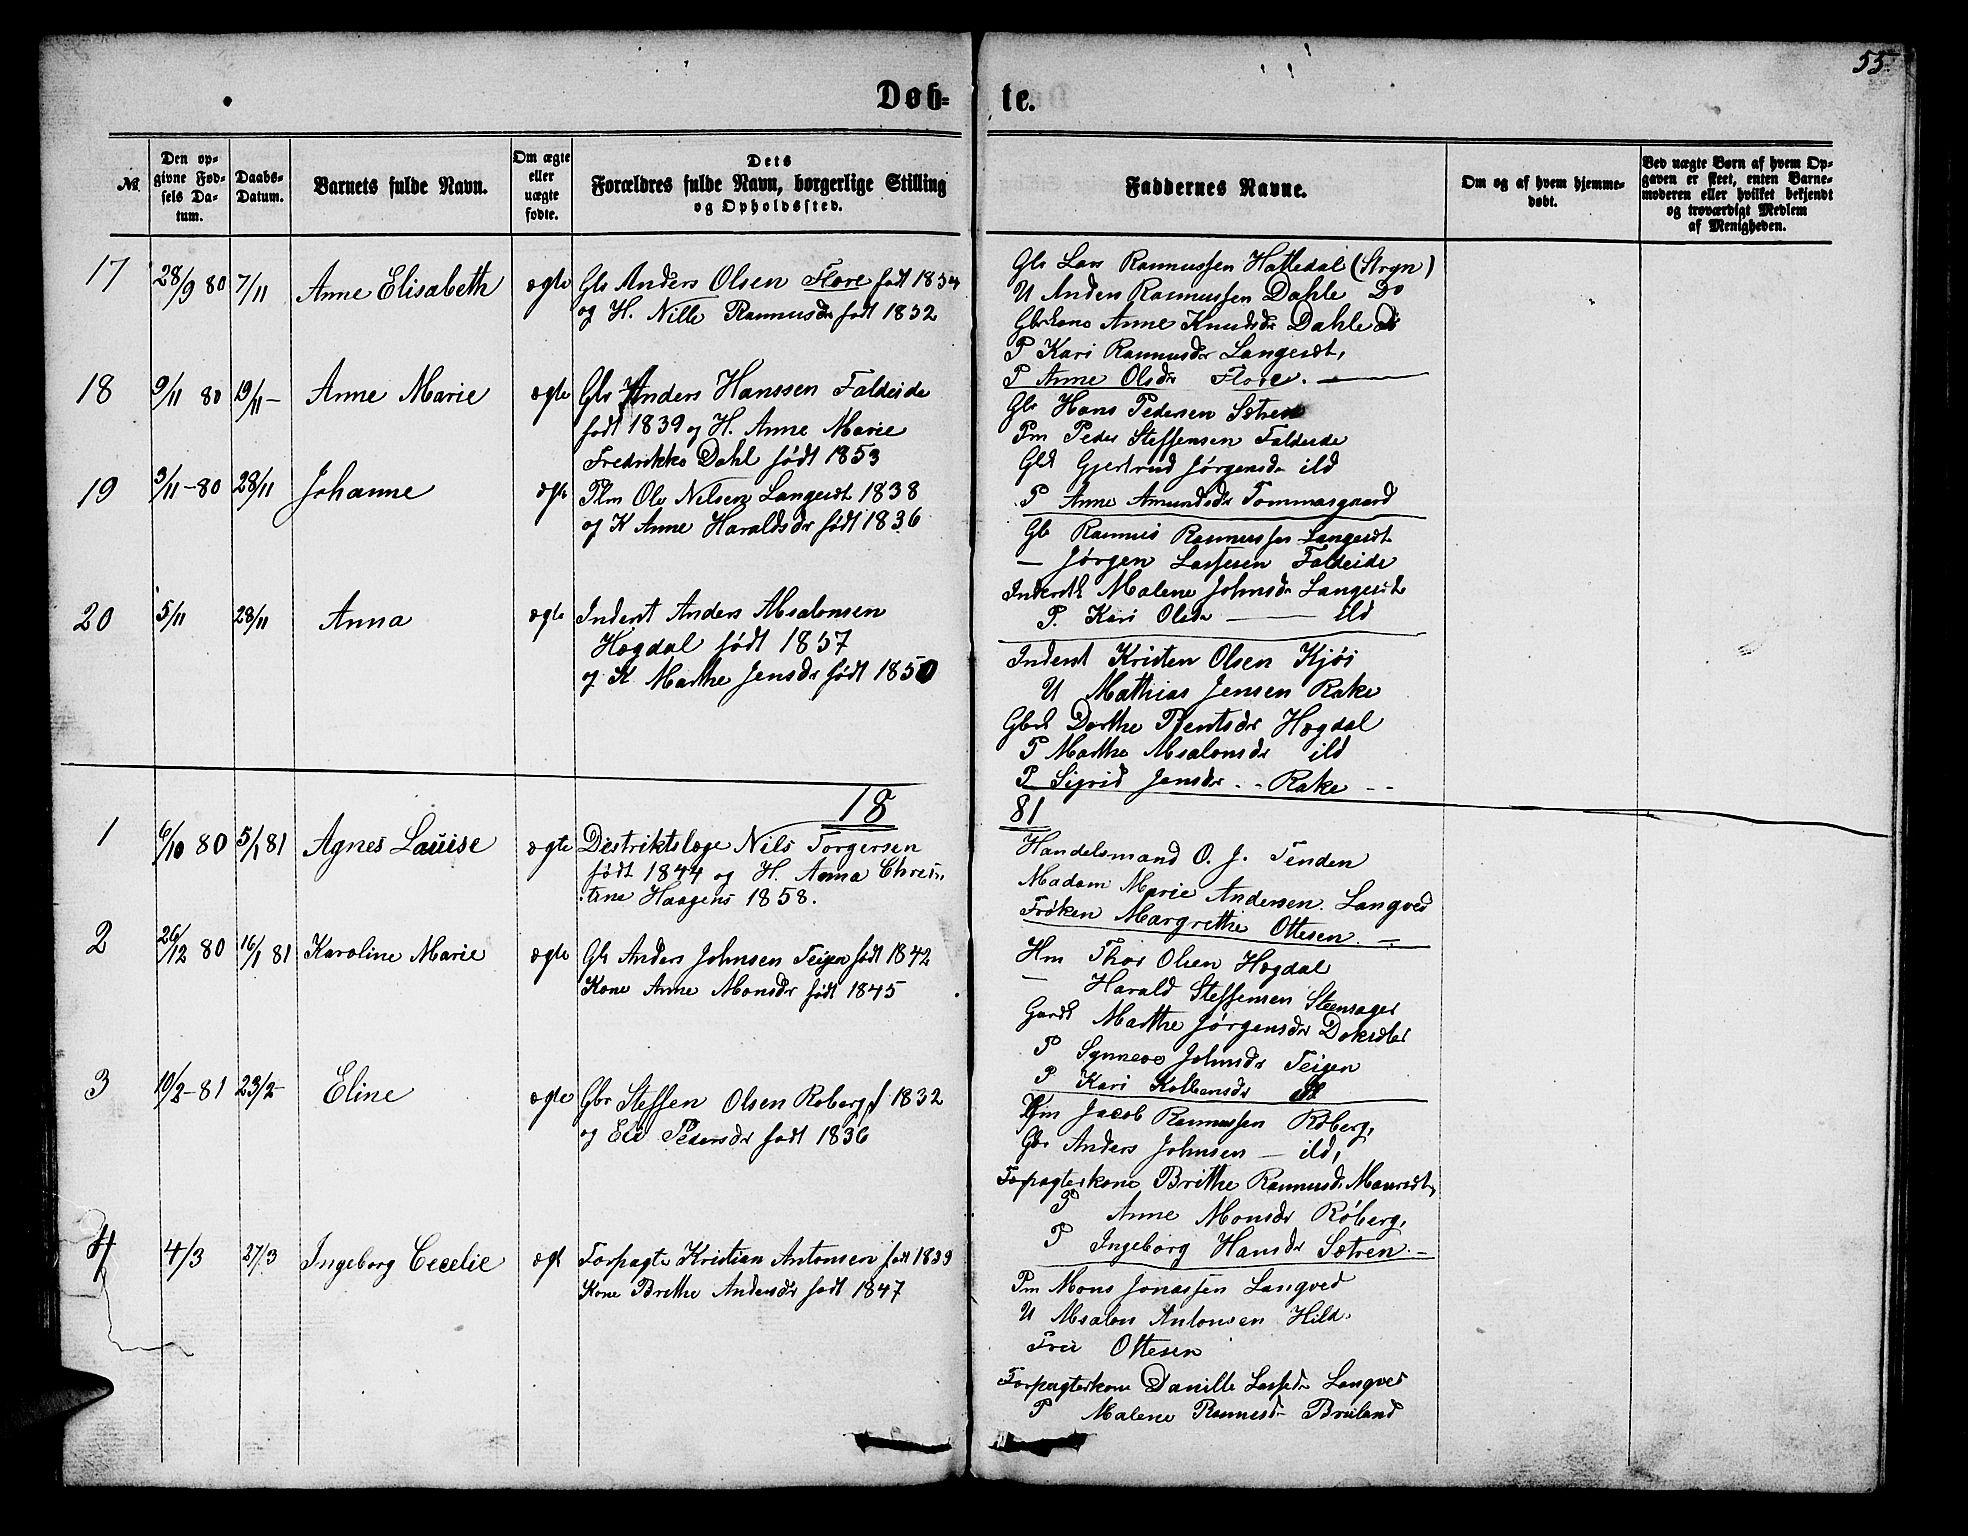 55.
Døb-te.
No.
Den opgivne Fødsels Datum.
Daabs-Datum.
Barnets fulde Navn.
Om ægte eller uægte fødte.
Dets Forældres fulde Navn, borgerlige Stilling og Opholdssted.
Faddernes Navne.
Om og af hvem hjemmedøbt.
Ved uægte Børn af hvem Opgaven er skeet, enten Barnemoderen eller hvilket bekjendt og troværdigt Medlem af Menigheden.
17 28/9 80 7/11 Anne Elisabeth ægte Gbr Anders Olsen Flore født 1834
og H. Nille Rasmusdr født 1832
Gbr Lars Rasmussen Hattedal (Stryn)
U Anders Rasmussen Dahle Do
Gbrkone Anne Knudsdr Dahle do
P Kari Rasmusdr Langesæt,
P Anne Olsdr Flore.
18 9/11 80 19/11 Anne Marie ægte Gbr Anders Hanssen Faldeide
født 1839 og H. Anne Marie
Fredrikke Dahl født 1853
Gbr Hans Pedersen Sætren
Pm Peder Steffensen Faldeide
Gbk Gjertrud Jørgensdr ibd
P Anne Amundsdr Tommasgaard
19 3/11-80 28/11 Johanne ægte Plm Ole Nilsen Langesæt 1838
og K Anne Haraldsdr født 1836
Gb Rasmus Rasmussen Langesæt
— Jørgen Lassesen Faldeide
Inderstk Malene Johnsdr Langesæt
P. Kari Olsdr — ibd
20 5/11 28/11 Anna ægte Inderst Anders Absalonsen
Høgdal født 1857
og K Marthe Jensdr født 1850
Inderst Kristen Olsen Kjøs
U Mathias Jensen Rake
Gbrk Dorthe Bentsdr Høgdal
P Marthe Absalonsdr ibd
P Sigrid Jensdr - - Rake - -
18 81
1 6/10 80 5/1 81 Agnes Lauise ægte Distriktslæge Nils Torgersen
født 1844 og H. Anna Chris-
tine Haagens 1858.
Handelsmand O. J. Tenden
Madam Marie Andersen. Langved
Frøken Margrethe Ottesen. —
2 26/12 80 16/1 81 Karoline Marie ægte Gbr Anders Johnsen Teigen født 1842
Kone Anne Monsdr født 1845
Hm Thor Olsen Høgdal
— Harald Steffensen Steensager
Gardk Marthe Jørgensdr Dokset
P Synneve Johnsdr Teigen
P Kari Kolbensdr ibd
3 10/2-81 23/2- Eline ægte Gbr Steffen Olsen Roberg f 1832
og Eli Pedersdr født 1836
Pm Jacob Rasmussen Røberg,
Gbr Anders Johnsen — ibd,
Forpagterkone Brithe Rasmusd. Maursæt,
P Anne Monsdr Røberg,
P Ingeborg Hansdr Sætren. —
4 4/3 27/3 Ingeborg Cecelie ægt Forpagte Kristian Antonsen født 1839
Kone Brithe Andersdr født 1847
Pm Mons Jonassen Langved
U Absalon Antonsen Hild.
Frii Ottesen
Forpagterkone Danille Lassedr Langved
P Malene Rasmusd. Bruland